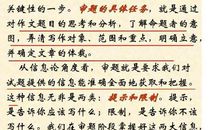 关键性的一步。审题的具体任务，就是通过
对作文题目的思考和分析，了解命题者的意
图，弄清写作对象、范围和重点，明确立意，
并确定文章的体裁。
从信息论角度看，审题就是要求我们对
试题提供的信息能准确全面地获取和把握。
这种信息无非是两类：提示和限制。提示，
是告诉你应该写什么；限制，是告诉你不应该
写什么。我们在审题阶段掌握好这两大